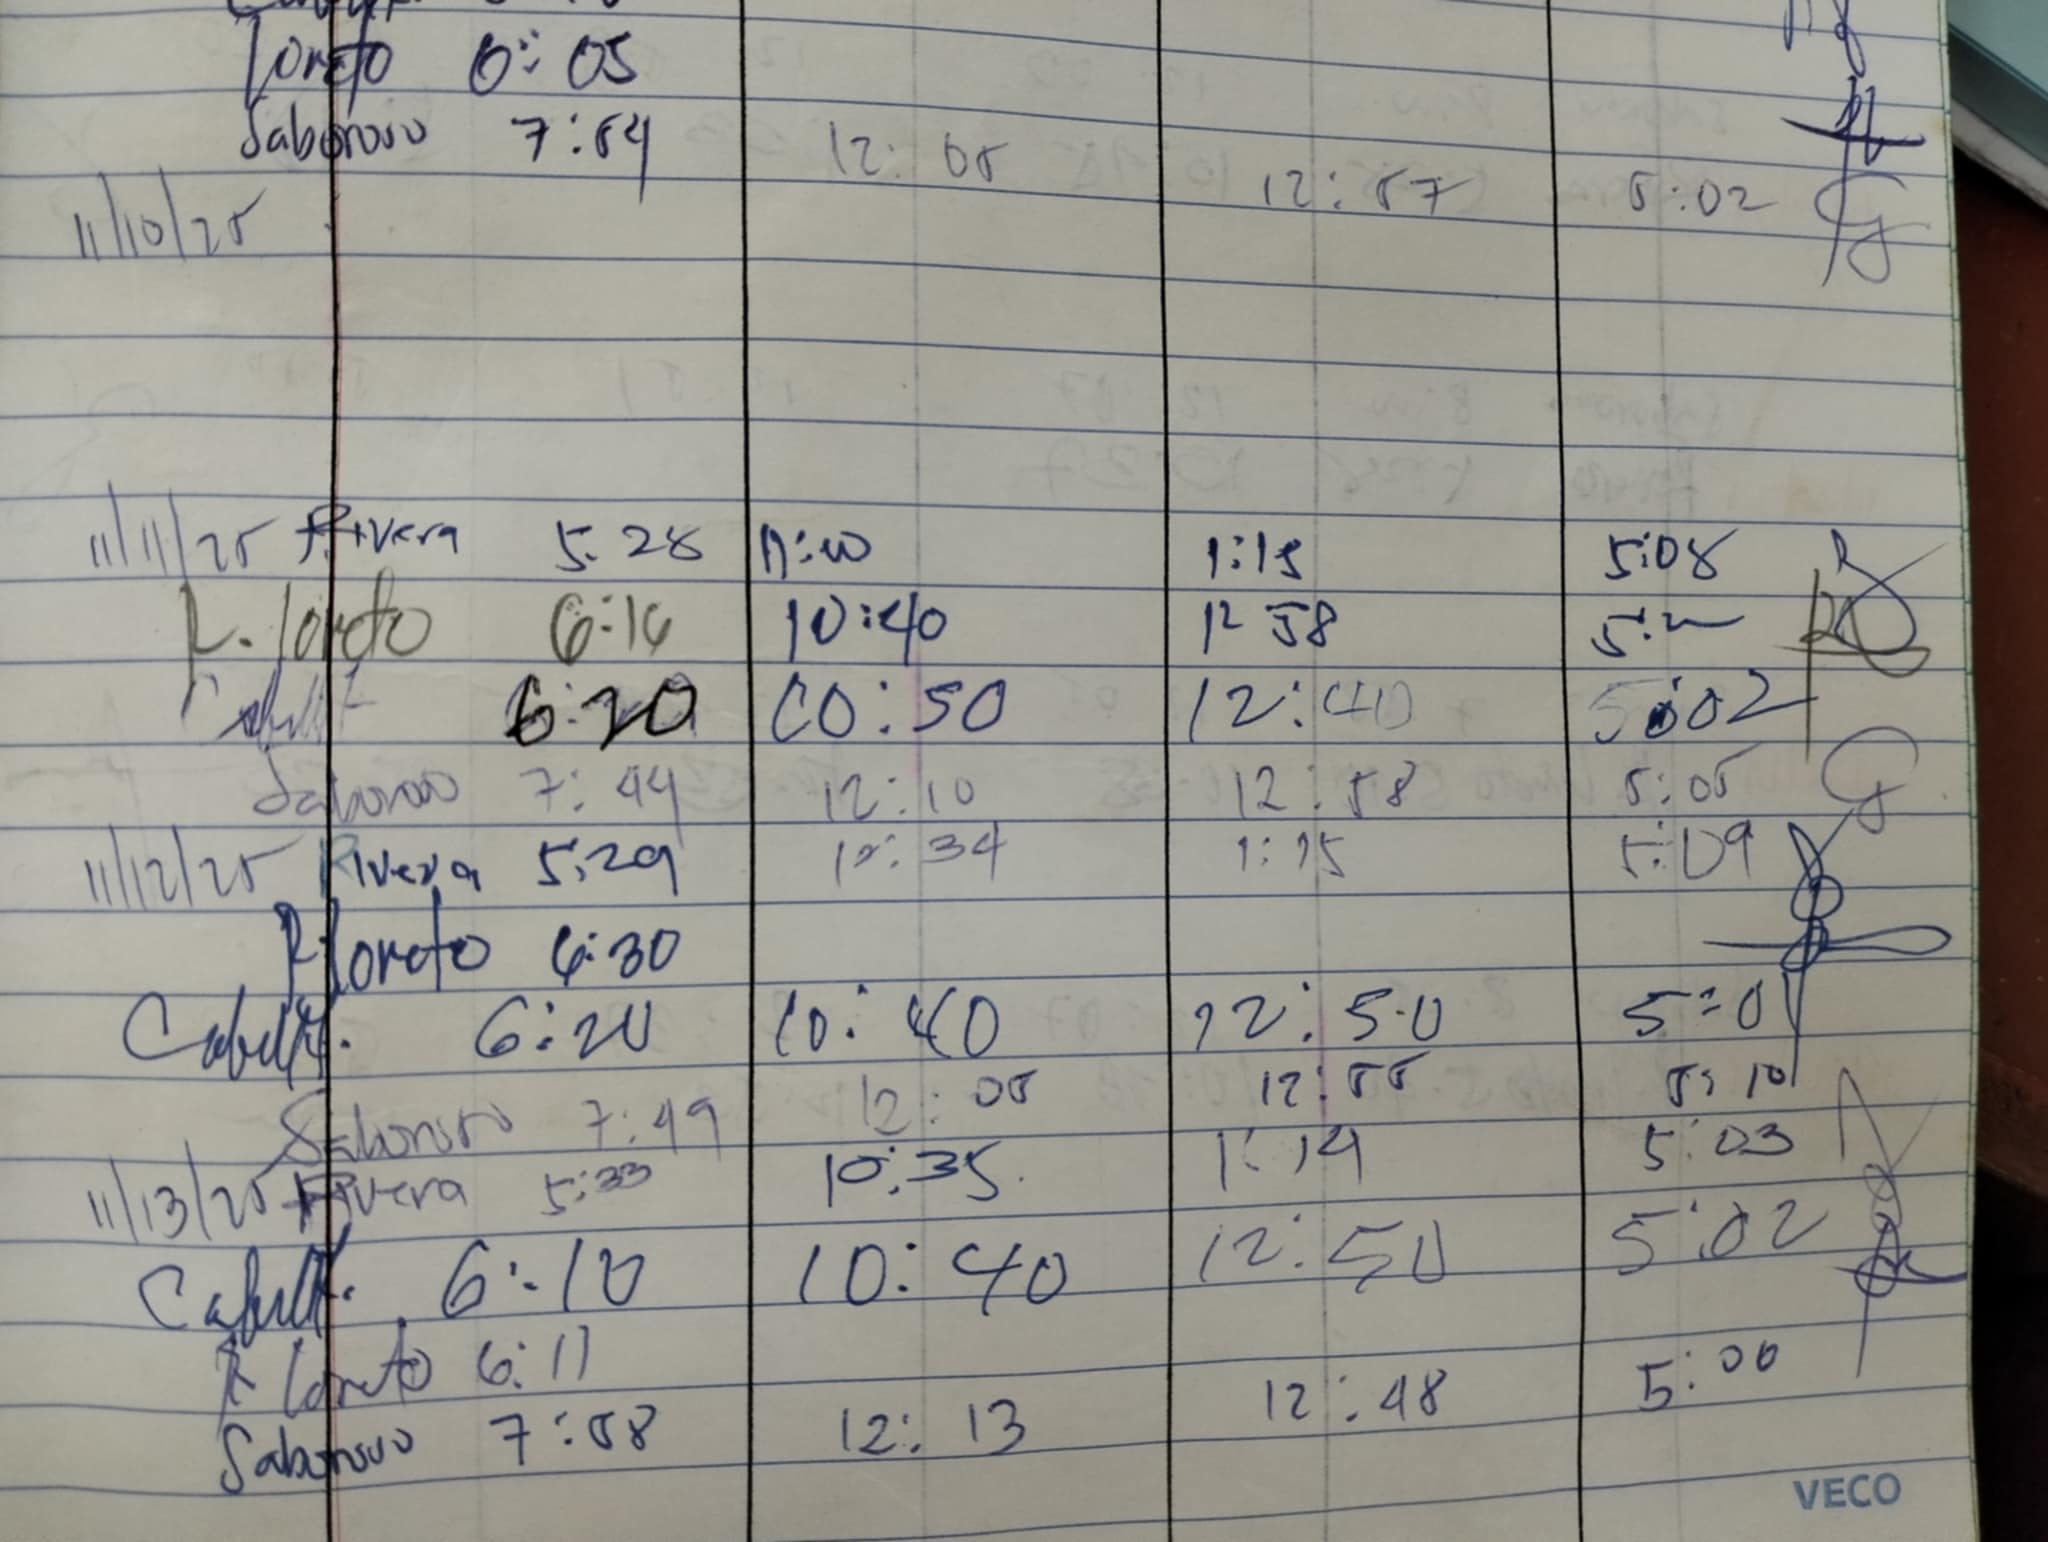 Loreto 6:05
Saboroso 7:54 12:05 12:57 5:02
11/10/25
11/11/25 Rivera 5:28 1:15 5:08
R. Loreto 6:16 10:40 12 58
6:20 10:50 12:40 5:02
Saboroso 7:44 12:10 12:58 5:05
11/12/25 Rivera 5:29 10:34 1:15 5:09
R. Loreto 6:30
6:20 10:40 12:50 5:01
Saboroso 7:49 12:05 12:55 5:10
11/13/25 Rivera 5:33 10:35 1:14 5:03
6:10 10:40 12:50 5:02
R Loreto 6:11
Saboroso 7:58 12:13 12:48 5:00
VECO